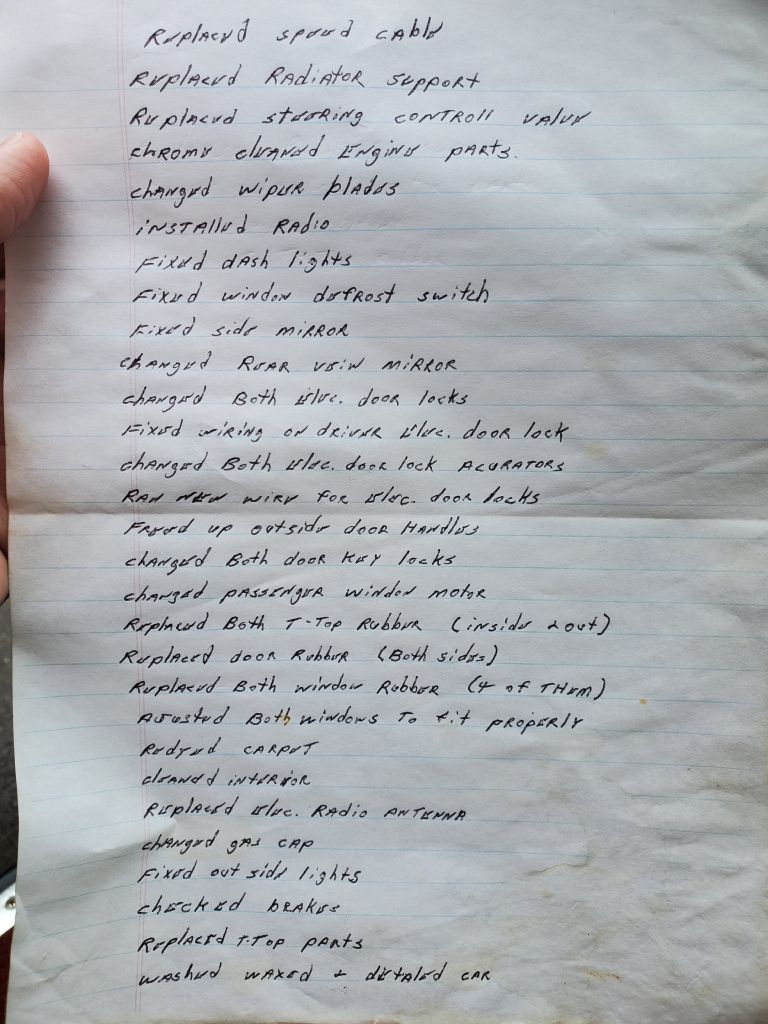 Replaced speed cable
Replaced Radiator support
Replaced steering controll value
chrome cleaned Engine parts.
changed wiper blades
installed Radio
Fixed dash lights
Fixed window defrost switch
Fixed side mirror
changed Rear veiw mirror
changed Both elec. door locks
Fixed wiring on driver elec. door lock
changed Both elec. door lock acurators
Ran new wire for elec. door locks
Freed up outside door Handles
changed Both door key locks
changed passenger window motor
Replaced Both T-Top Rubber (inside & out)
Replaced door Rubber (Both sides)
Replaced Both window Rubber (4 of Them)
Ajusted Both windows To fit properly
Redyed carpet
cleaned interior
Replaced elec. Radio antenna
changed gas cap
Fixed out side lights
checked brakes
Replaced T-Top parts
washed waxed & detaled car